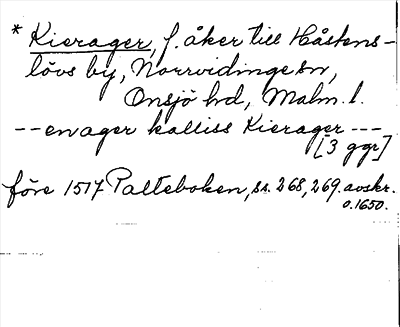 * Kierager, f. åker till Håstens-
lövs by, Norrvidinge sn,
Onsjö hd, Malm. l.
-- en ager kalliss Kierager ---
[3 ggr]
före 1517 Palteboken, ss. 268, 269. avskr.
o. 1650.